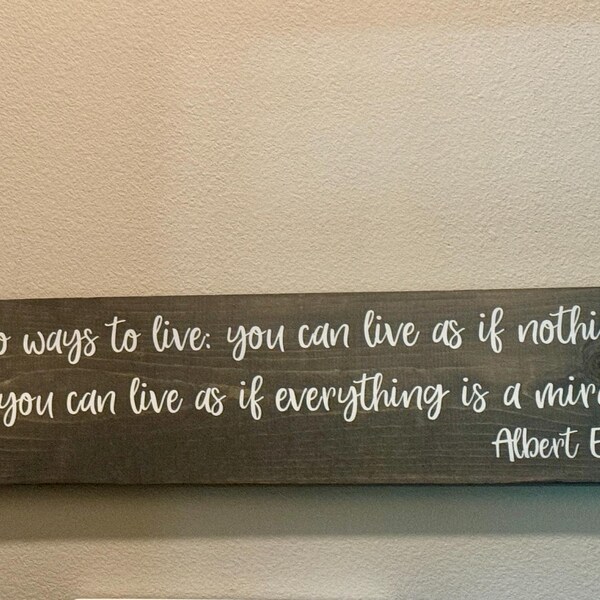 o ways to live: you can live as if nothi
you can live as if everything is a mira
Albert E